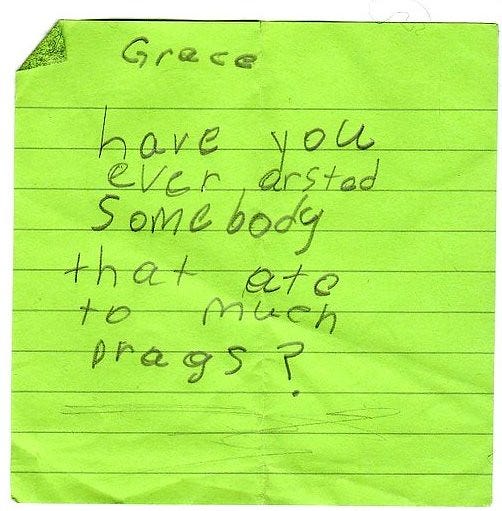 Grace
have you
ever arsted
somebody
that ate
to much
prags?